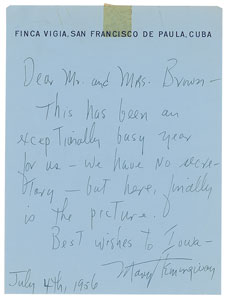 FINCA VIGIA, SAN FRANCISCO DE PAULA, CUBA
Dear Mr. and Mrs. Brown—
This has been an
exceptionally busy year
for us — we have no secre-
tary — but here, finally
is the picture.
Best wishes to Iowa—
Mary Hemingway
July 4th, 1956